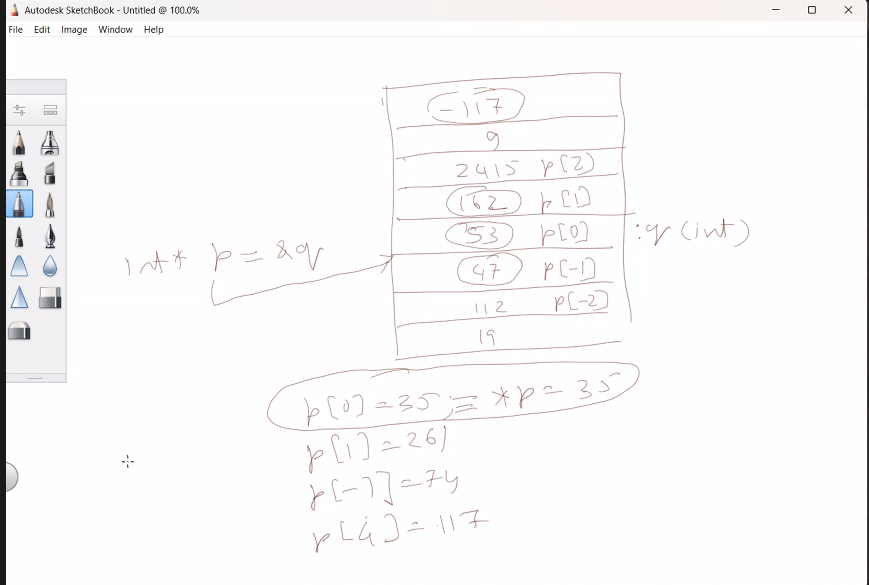 Autodesk SketchBook - Untitled @ 100.0%
File Edit Image Window Help
-117
9
2415 p[2]
162 p[1]
53 p[0] : q (int)
int* p = &q
47 p[-1]
112 p[-2]
19
p[0] = 35 ; ≡ *p = 35
p[1] = 261
p[-1] = 74
p[4] = 117